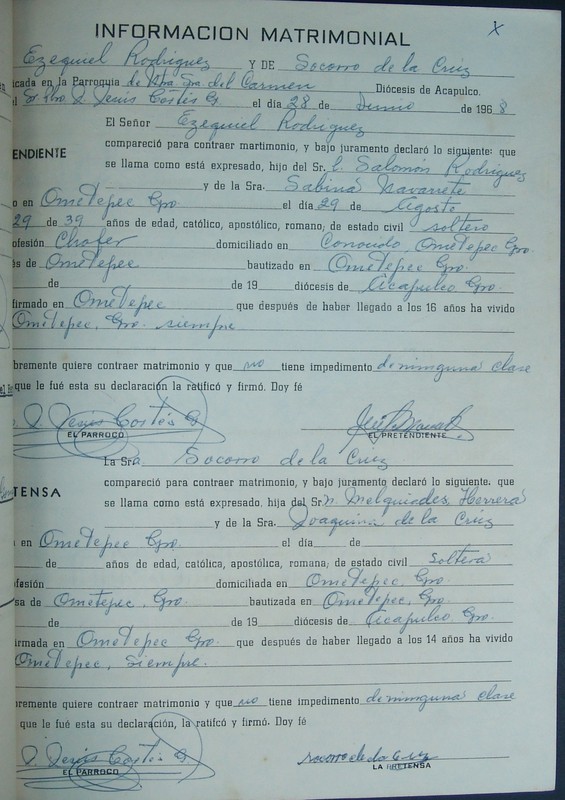 INFORMACION MATRIMONIAL
Ezequiel Rodriguez Y DE Socorro de la Cruz
icada en la Parroquia de Ntra Sra del Carmen Diócesis de Acapulco.
el Sr Pbro J. Jesús Cortés G. el día 28 de Junio de 1968
El Señor Ezequiel Rodriguez
compareció para contraer martimonio, y bajo juramento declaró lo siguiente: que
ENDIENTE
se llama como está expresado, hijo del Sr. l. Salomón Rodriguez
y de la Sra. Sabina Navarrete
o en Ometepec Gro el día 29 de Agosto
29 de 39 años de edad, católico, apostólico, romano, de estado civil soltero
ofesión Chofer domiciliado en Conocido, Ometepec Gro
es de Ometepec bautizado en Ometepec Gro.
de de 19 diócesis de Acapulco Gro
firmado en Ometepec que después de haber llegado a los 16 años ha vivido
Ometepec, Gro. siempre
bremente quiere contraer matrimonio y que no tiene impedimento de ninguna clase
que le fué esta su declaración la ratificó y firmó. Doy fé
J. Jesús Cortés G
EL PARROCO EL PRETENDIENTE
La Sra Socorro de la Cruz
compareció para contraer matrimonio, y bajo juramento declaró lo siguiente. que
TENSA
se llama como está expresado, hija del Sr. n. Melquiades Herrera
y de la Sra. Joaquina de la Cruz
en Ometepec Gro. el día de
de años de edad, católica, apostólica, romana; de estado civil soltera
ofesión domiciliada en Ometepec, Gro.
sa de Ometepec, Gro. bautizada en Ometepec, Gro.
de de 19 diócesis de Acapulco Gro.
irmada en Ometepec Gro. que después de haber llegado a los 14 años ha vivido
Ometepec, siempre.
bremente quiere contraer matrimonio y que no tiene impedimento de ninguna clase
que le fué esta su declaración, la ratifcó y firmó. Doy fé
J. Jesús Cortés G socorro de la Cruz
EL PARROCO LA PRETENSA